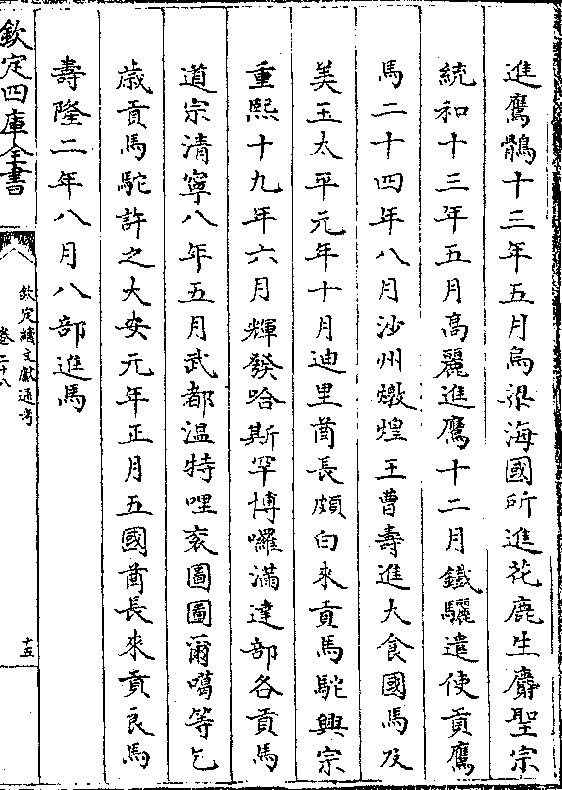 進鷹鶻十三年五月烏梁海國所進花鹿生麝聖宗
統和十三年五月高麗進鷹十二月鐵驪遣使貢鷹
馬二十四年八月沙州燉煌王曹壽進大食國馬及
美玉太平元年十月迪里酋長頗白來貢馬駝興宗
重熙十九年六月輝發哈斯罕博囉滿達部各貢馬
道宗清寧八年五月武都溫特哩衮圖圖爾噶等乞
歲貢馬駝許之大安元年正月五國酋長來貢良馬
壽隆二年八月八部進馬
欽定四庫全書
欽定續文獻通考
卷二十八
十五